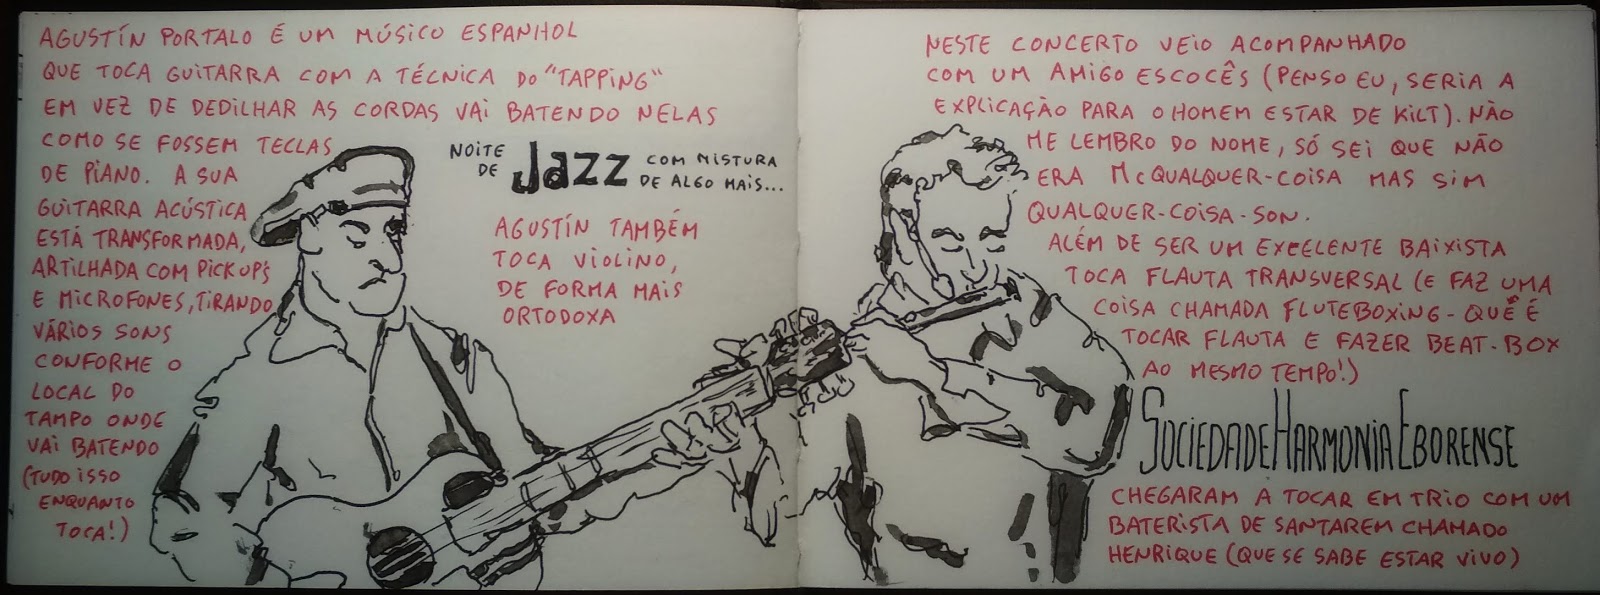 AGUSTÍN PORTALO É UM MÚSICO ESPANHOL
QUE TOCA GUITARRA COM A TÉCNICA DO "TAPPING"
EM VEZ DE DEDILHAR AS CORDAS VAI BATENDO NELAS
COMO SE FOSSEM TECLAS
DE PIANO. A SUA
GUITARRA ACÚSTICA
ESTÁ TRANSFORMADA,
ARTILHADA COM PICKUP'S
E MICROFONES, TIRANDO
VÁRIOS SONS
CONFORME O
LOCAL DO
TAMPO ONDE
VAI BATENDO
(TUDO ISSO
ENQUANTO
TOCA!)
NOITE
DE Jazz COM MISTURA
DE ALGO MAIS...
AGUSTÍN TAMBÉM
TOCA VIOLINO,
DE FORMA MAIS
ORTODOXA
NESTE CONCERTO VEIO ACOMPANHADO
COM UM AMIGO ESCOCÊS (PENSO EU, SERIA A
EXPLICAÇÃO PARA O HOMEM ESTAR DE KILT). NÃO
ME LEMBRO DO NOME, SÓ SEI QUE NÃO
ERA McQUALQUER-COISA MAS SIM
QUALQUER-COISA-SON.
ALÉM DE SER UM EXCELENTE BAIXISTA
TOCA FLAUTA TRANSVERSAL (E FAZ UMA
COISA CHAMADA FLUTEBOXING - QUÊ É
TOCAR FLAUTA E FAZER BEAT-BOX
AO MESMO TEMPO!)
SOCIEDADE HARMONIA EBORENSE
CHEGARAM A TOCAR EM TRIO COM UM
BATERISTA DE SANTAREM CHAMADO
HENRIQUE (QUE SE SABE ESTAR VIVO)